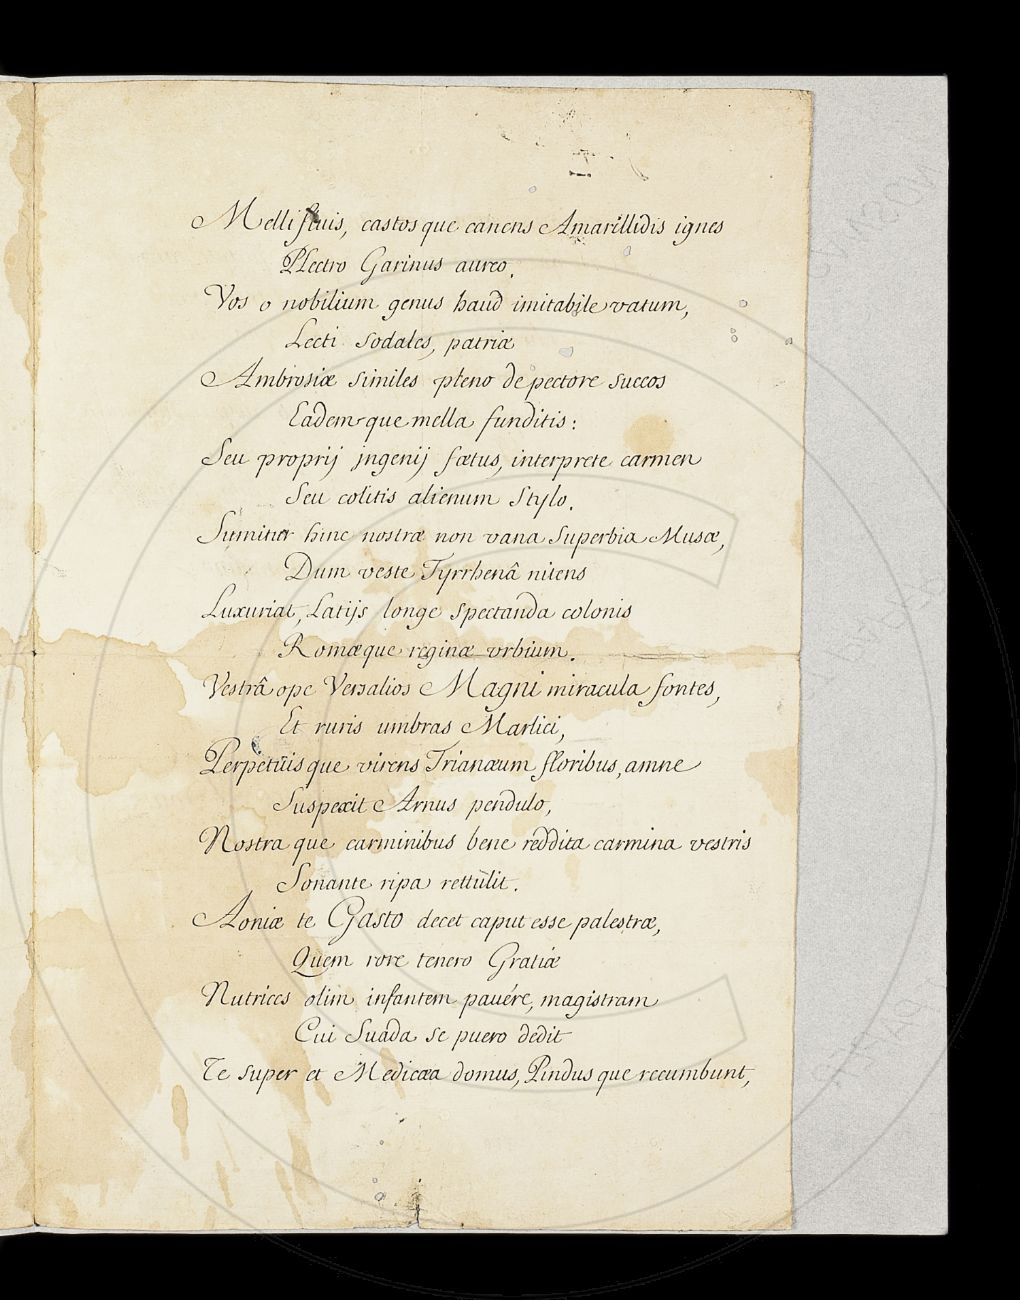 Mellifluis, castosque canens Amarillidis ignes
Plectro Garinus aureo.
Vos o nobilium genus haud imitabile vatum,
Lecti Sodales, patriæ
Ambrosiæ similes pleno de pectore succos
Eademque mella funditis:
Seu proprij jngenij fœtus, interprete carmen
Seu colitis alienum Stylo.
Sumitur hinc nostræ non vana Superbia Musæ,
Dum veste Tyrrhenâ nitens
Luxuriat, Latijs longe spectanda colonis
Romæque reginæ vrbium.
Vestrâ ope Versalios Magni miracula fontes,
Et ruris umbras Marlici,
Perpetuisque virens Trianæum floribus, amne
Suspexit Arnus pendulo,
Nostraque carminibus bene reddita carmina vestris
Sonante ripa rettülit.
Aoniæ te Gasto decet caput esse palestræ,
Quem rore tenero Gratiæ
Nutrices olim infantem pavére, magistram
Cui Suada se puero dedit
Te super et Medicæa domus, Pindusque recumbunt,